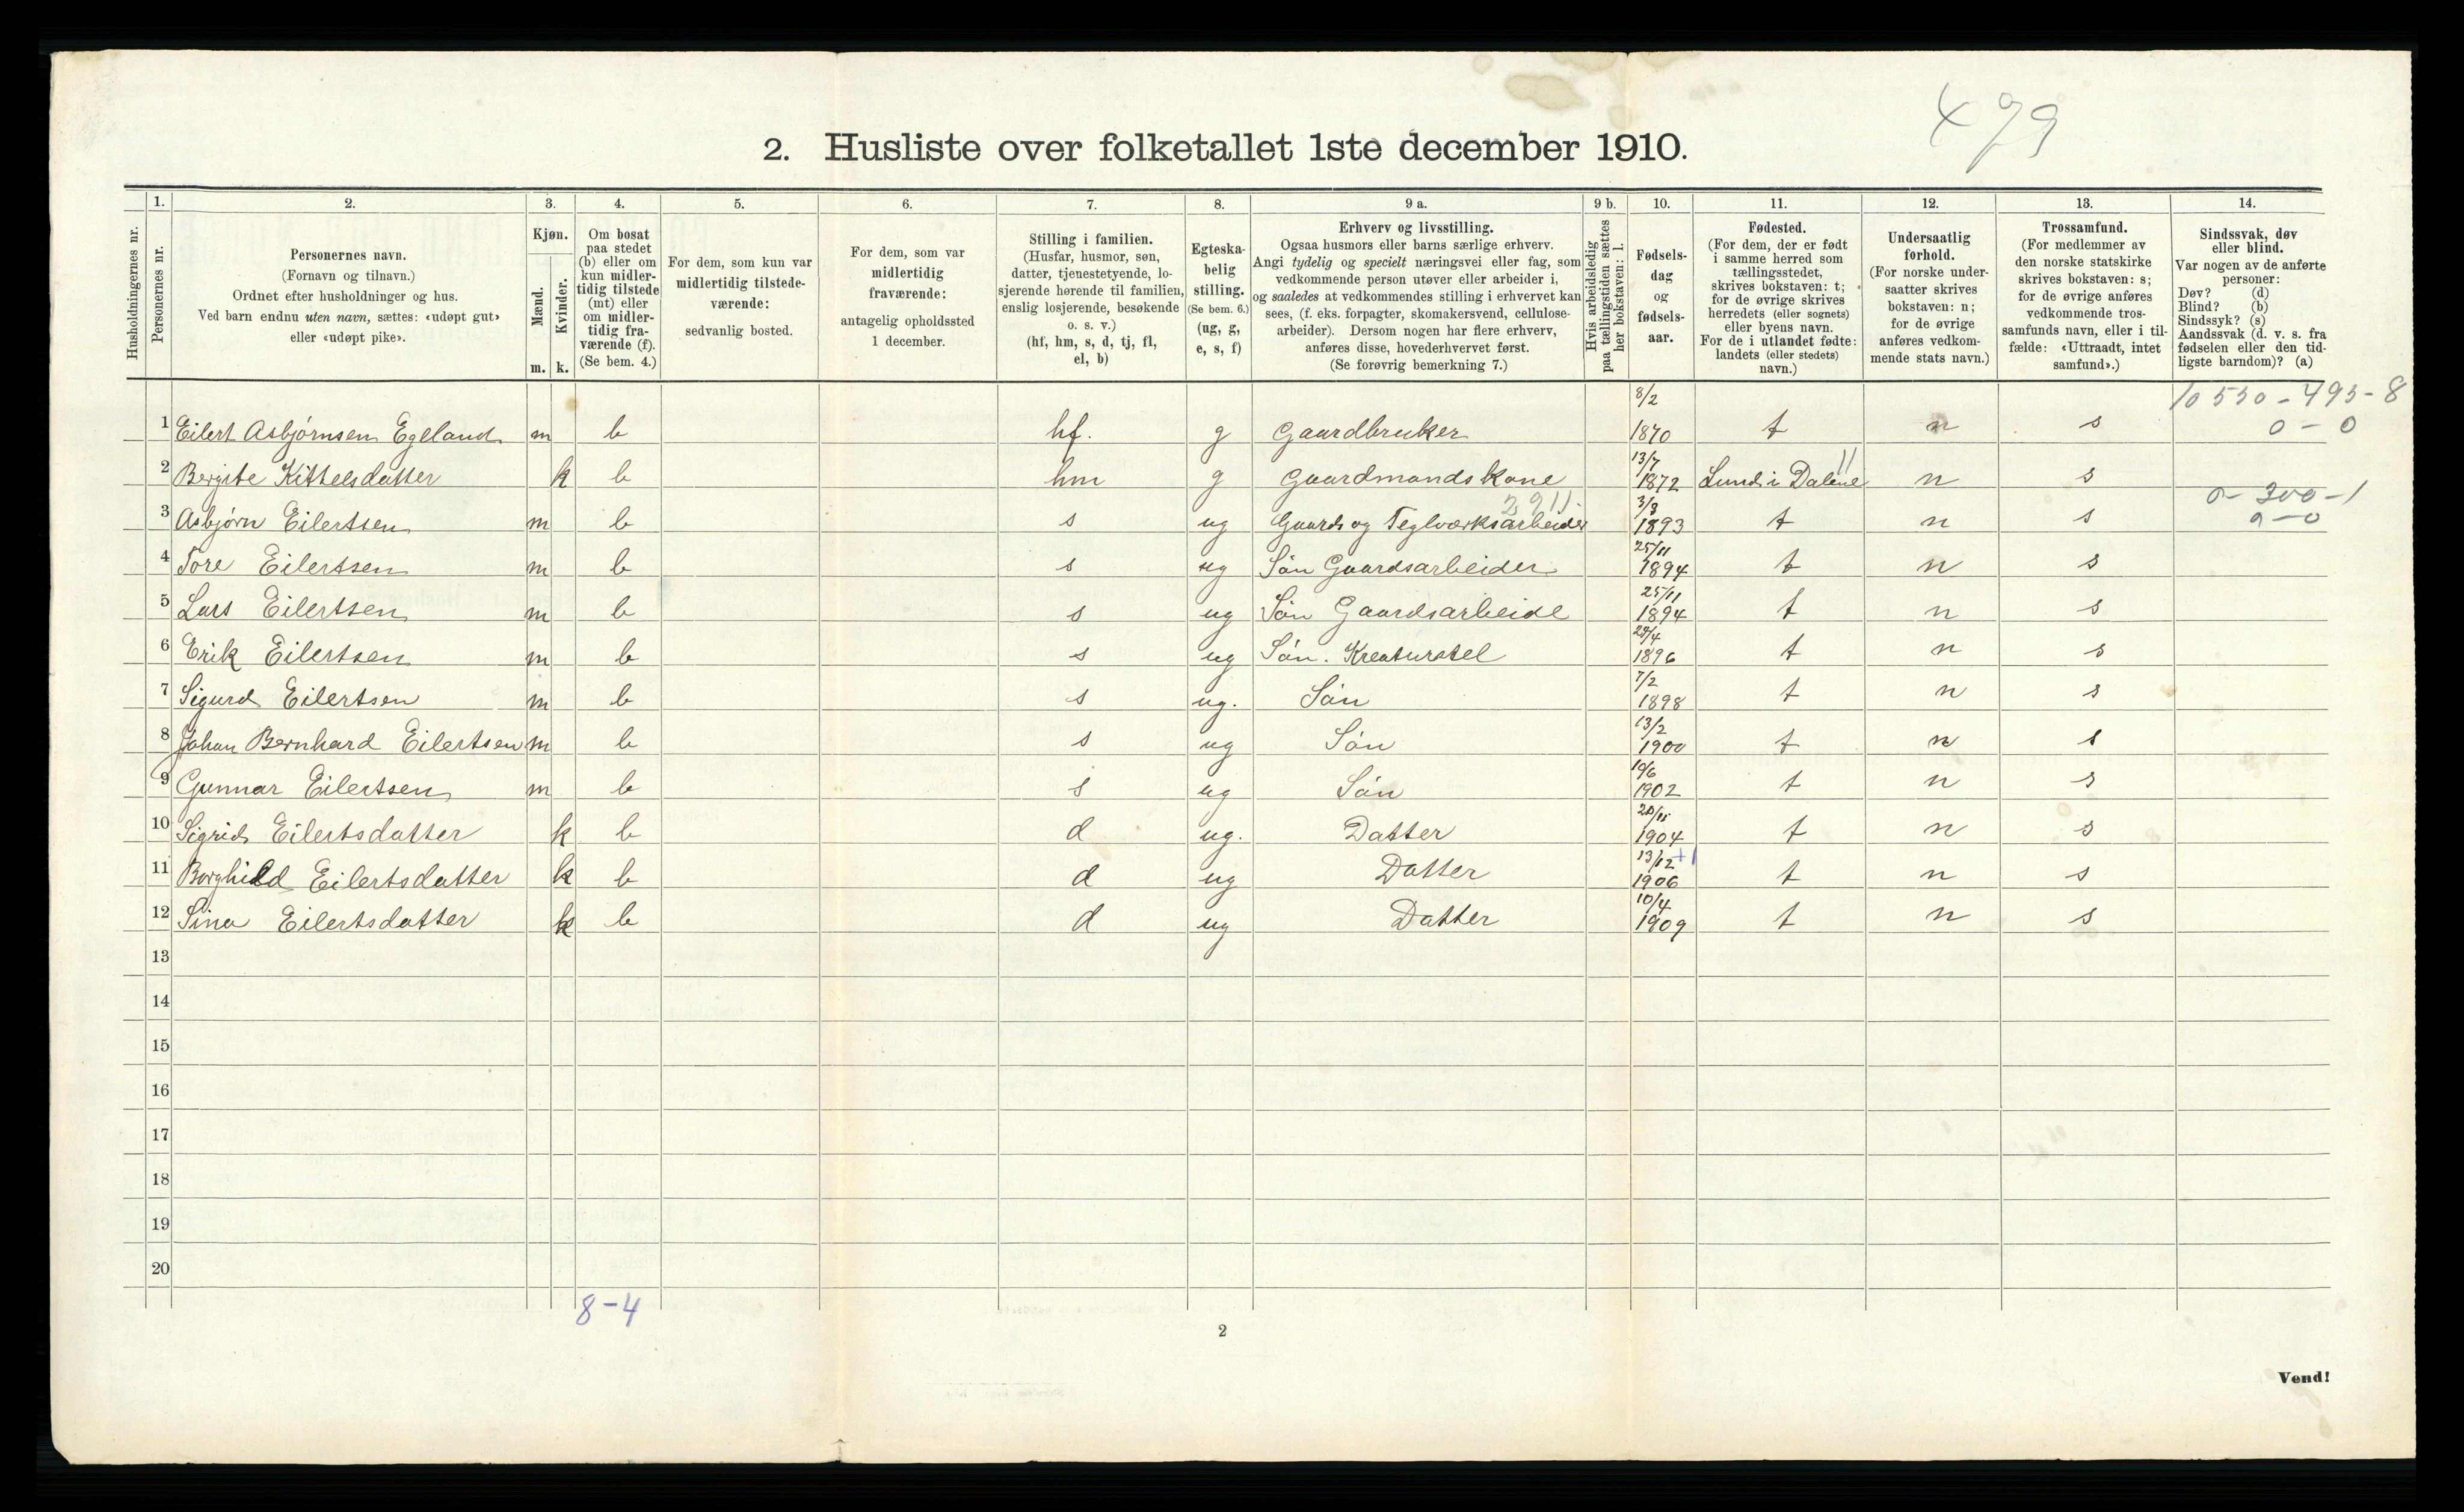 479
2. Husliste over folketallet 1ste december 1910.
Husholdningernes nr.
1.
Personernes nr.
2.
Personernes navn.
(Fornavn og tilnavn.)
Ordnet efter husholdninger og hus.
Ved barn endnu uten navn, sættes: «udøpt gut»
eller «udøpt pike».
3.
Kjøn.
Mænd.
Kvinder.
m. k.
4.
Om bosat
paa stedet
(b) eller om
kun midler-
tidig tilstede
(mt) eller
om midler-
tidig fra-
værende (f).
(Se bem. 4.)
5.
For dem, som kun var
midlertidig tilstede-
værende:
sedvanlig bosted.
6.
For dem, som var
midlertidig
fraværende:
antagelig opholdssted
1 december.
7.
Stilling i familien.
(Husfar, husmor, søn,
datter, tjenestetyende, lo-
sjerende hørende til familien,
enslig losjerende, besøkende
o. s. v.)
(hf, hm, s, d, tj, fl,
el, b)
8.
Egteska-
belig
stilling.
(Se bem. 6.)
(ug, g,
e, s, f)
9 a.
Erhverv og livsstilling.
Ogsaa husmors eller barns særlige erhverv.
Angi tydelig og specielt næringsvei eller fag, som
vedkommende person utøver eller arbeider i,
og saaledes at vedkommendes stilling i erhvervet kan
sees, (f. eks. forpagter, skomakersvend, cellulose-
arbeider). Dersom nogen har flere erhverv,
anføres disse, hovederhvervet først.
(Se forøvrig bemerkning 7.)
9 b.
Hvis arbeidsledig
paa tællingstiden sættes
her bokstaven: l.
10.
Fødsels-
dag
og
fødsels-
aar.
11.
Fødested.
(For dem, der er født
i samme herred som
tællingsstedet,
skrives bokstaven: t;
for de øvrige skrives
herredets (eller sognets)
eller byens navn.
For de i utlandet fødte:
landets (eller stedets)
navn.)
12.
Undersaatlig
forhold.
(For norske under-
saatter skrives
bokstaven: n;
for de øvrige
anføres vedkom-
mende stats navn.)
13.
Trossamfund.
(For medlemmer av
den norske statskirke
skrives bokstaven: s;
for de øvrige anføres
vedkommende tros-
samfunds navn, eller i til-
fælde: «Uttraadt, intet
samfund».)
14.
Sindssvak, døv
eller blind.
Var nogen av de anførte
personer:
Døv? (d)
Blind? (b)
Sindssyk? (s)
Aandssvak (d. v. s. fra
fødselen eller den tid-
ligste barndom)? (a)
10 550 - 495 - 8
1 Eilert Asbjørnsen Egeland m b hf. g Gaardbruker 8/2 1870 t n s 0 - 0
2 Bergite Kittelsdatter k b hm g Gaardmandskone 13/7 1872 Lund i Dalene 11 n s
0 - 300 - 1
3 Asbjørn Eilertsen m b s ug Gaards og Teglværksarbeider 3/3 1893 t n s 0 - 0
4 Tore Eilertsen m b s ug Søn Gaardsarbeider 25/11 1894 t n s
5 Lars Eilertsen m b s ug Søn Gaardsarbeide 25/11 1894 t n s
6 Erik Eilertsen m b s ug Søn. Kreaturstel 1896 t n s
7 Sigurd Eilertsen m b s ug. Søn 7/2 1898 t n s
8 Johan Bernhard Eilertsen m b s ug Søn 13/2 1900 t n s
9 Gunnar Eilertsen m b s ug Søn 1902 t n s
10 Sigrid Eilertsdatter k b d ug. Datter 20/11 1904 t n s
11 Borghild Eilertsdatter k b d ug Datter 13/12 +1 1906 t n s
12 Sina Eilertsdatter k b d ug Datter 10/4 1909 t n s
13
14
15
16
17
18
19
20
8-4
2
Vend!